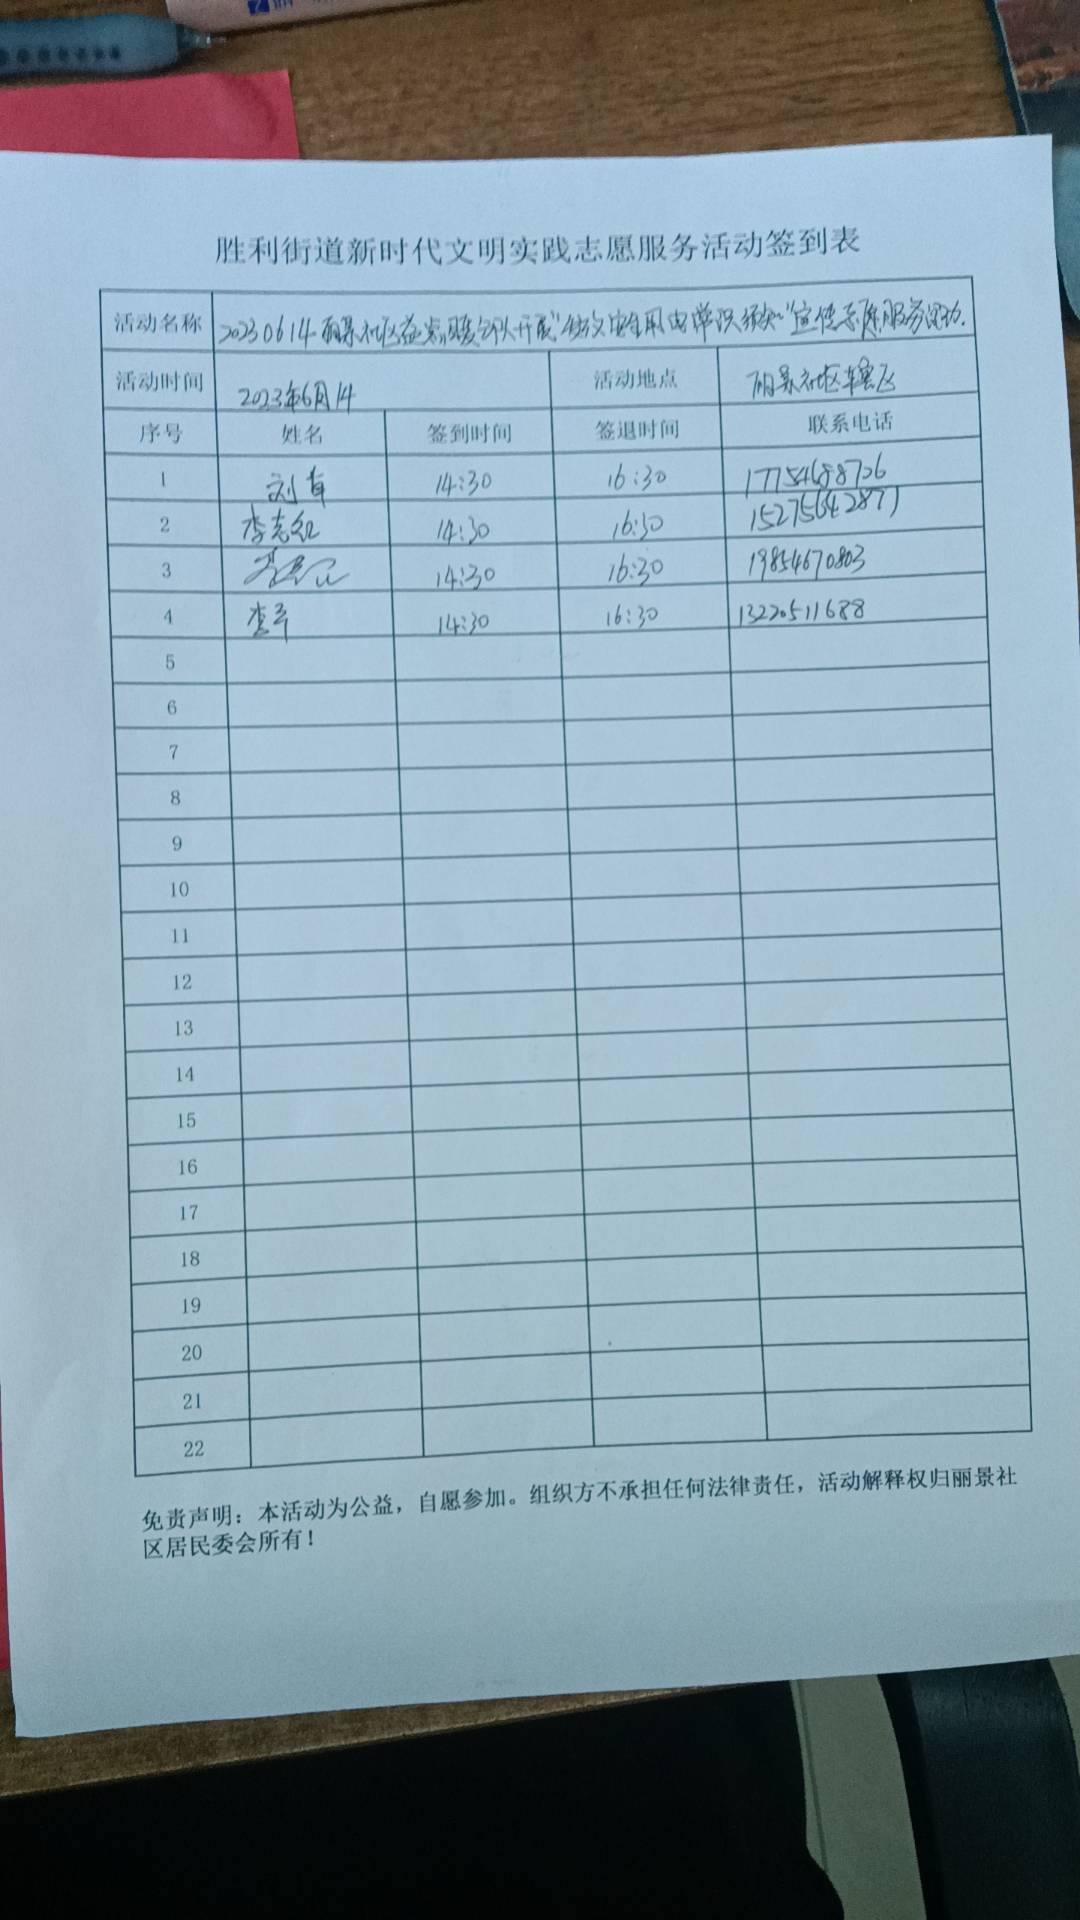 胜利街道新时代文明实践志愿服务活动签到表
活动名称 20230614 丽景社区益家暖邻队开展"安全用电常识须知"宣传志愿服务活动.
活动时间 2023年6月14 活动地点 丽景社区辖区
序号 姓名 签到时间 签退时间 联系电话
1 刘 14:30 16:30 17754688726
2 李志红 14:30 16:30 15275642877
3 14:30 16:30 19854670803
4 李 14:30 16:30 13220511688
5
6
7
8
9
10
11
12
13
14
15
16
17
18
19
20
21
22
免责声明：本活动为公益，自愿参加。组织方不承担任何法律责任，活动解释权归丽景社
区居民委会所有！